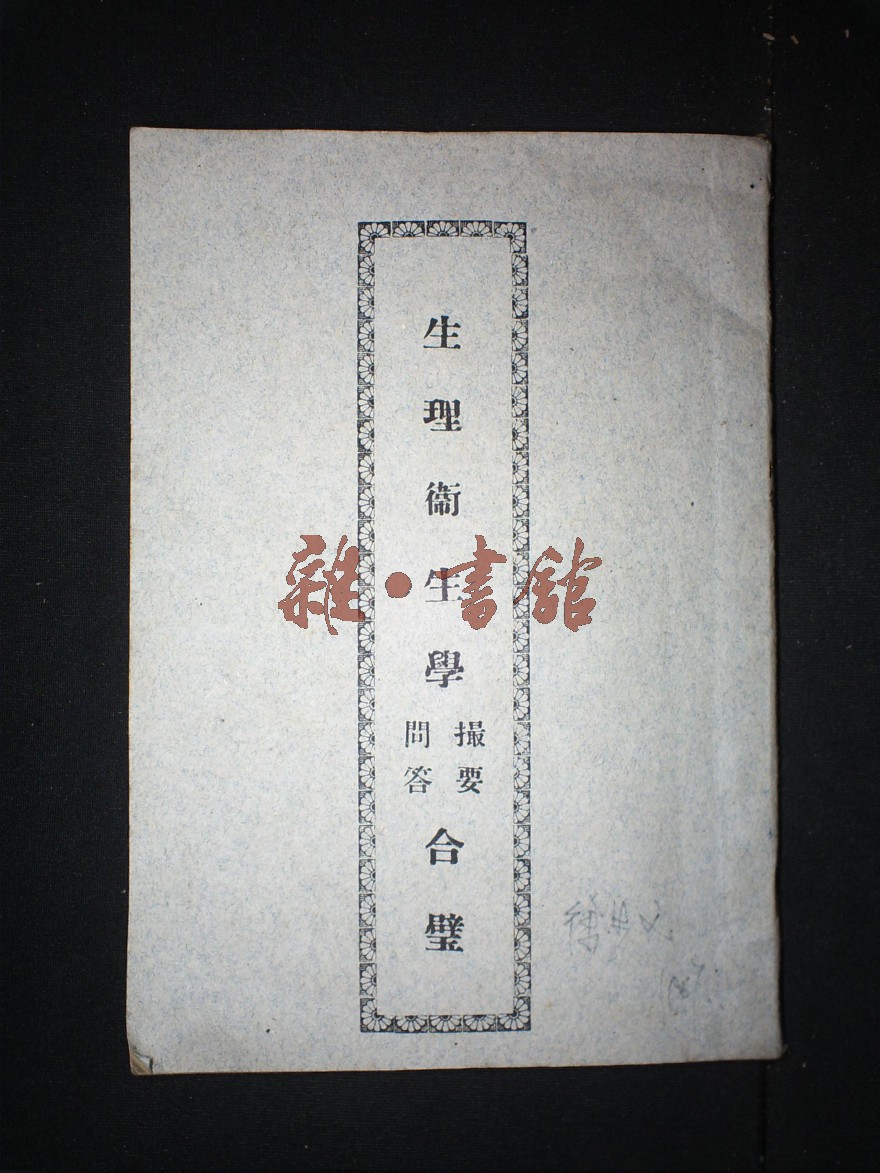 生理衞生學
撮要
問答
合璧
雜·書館